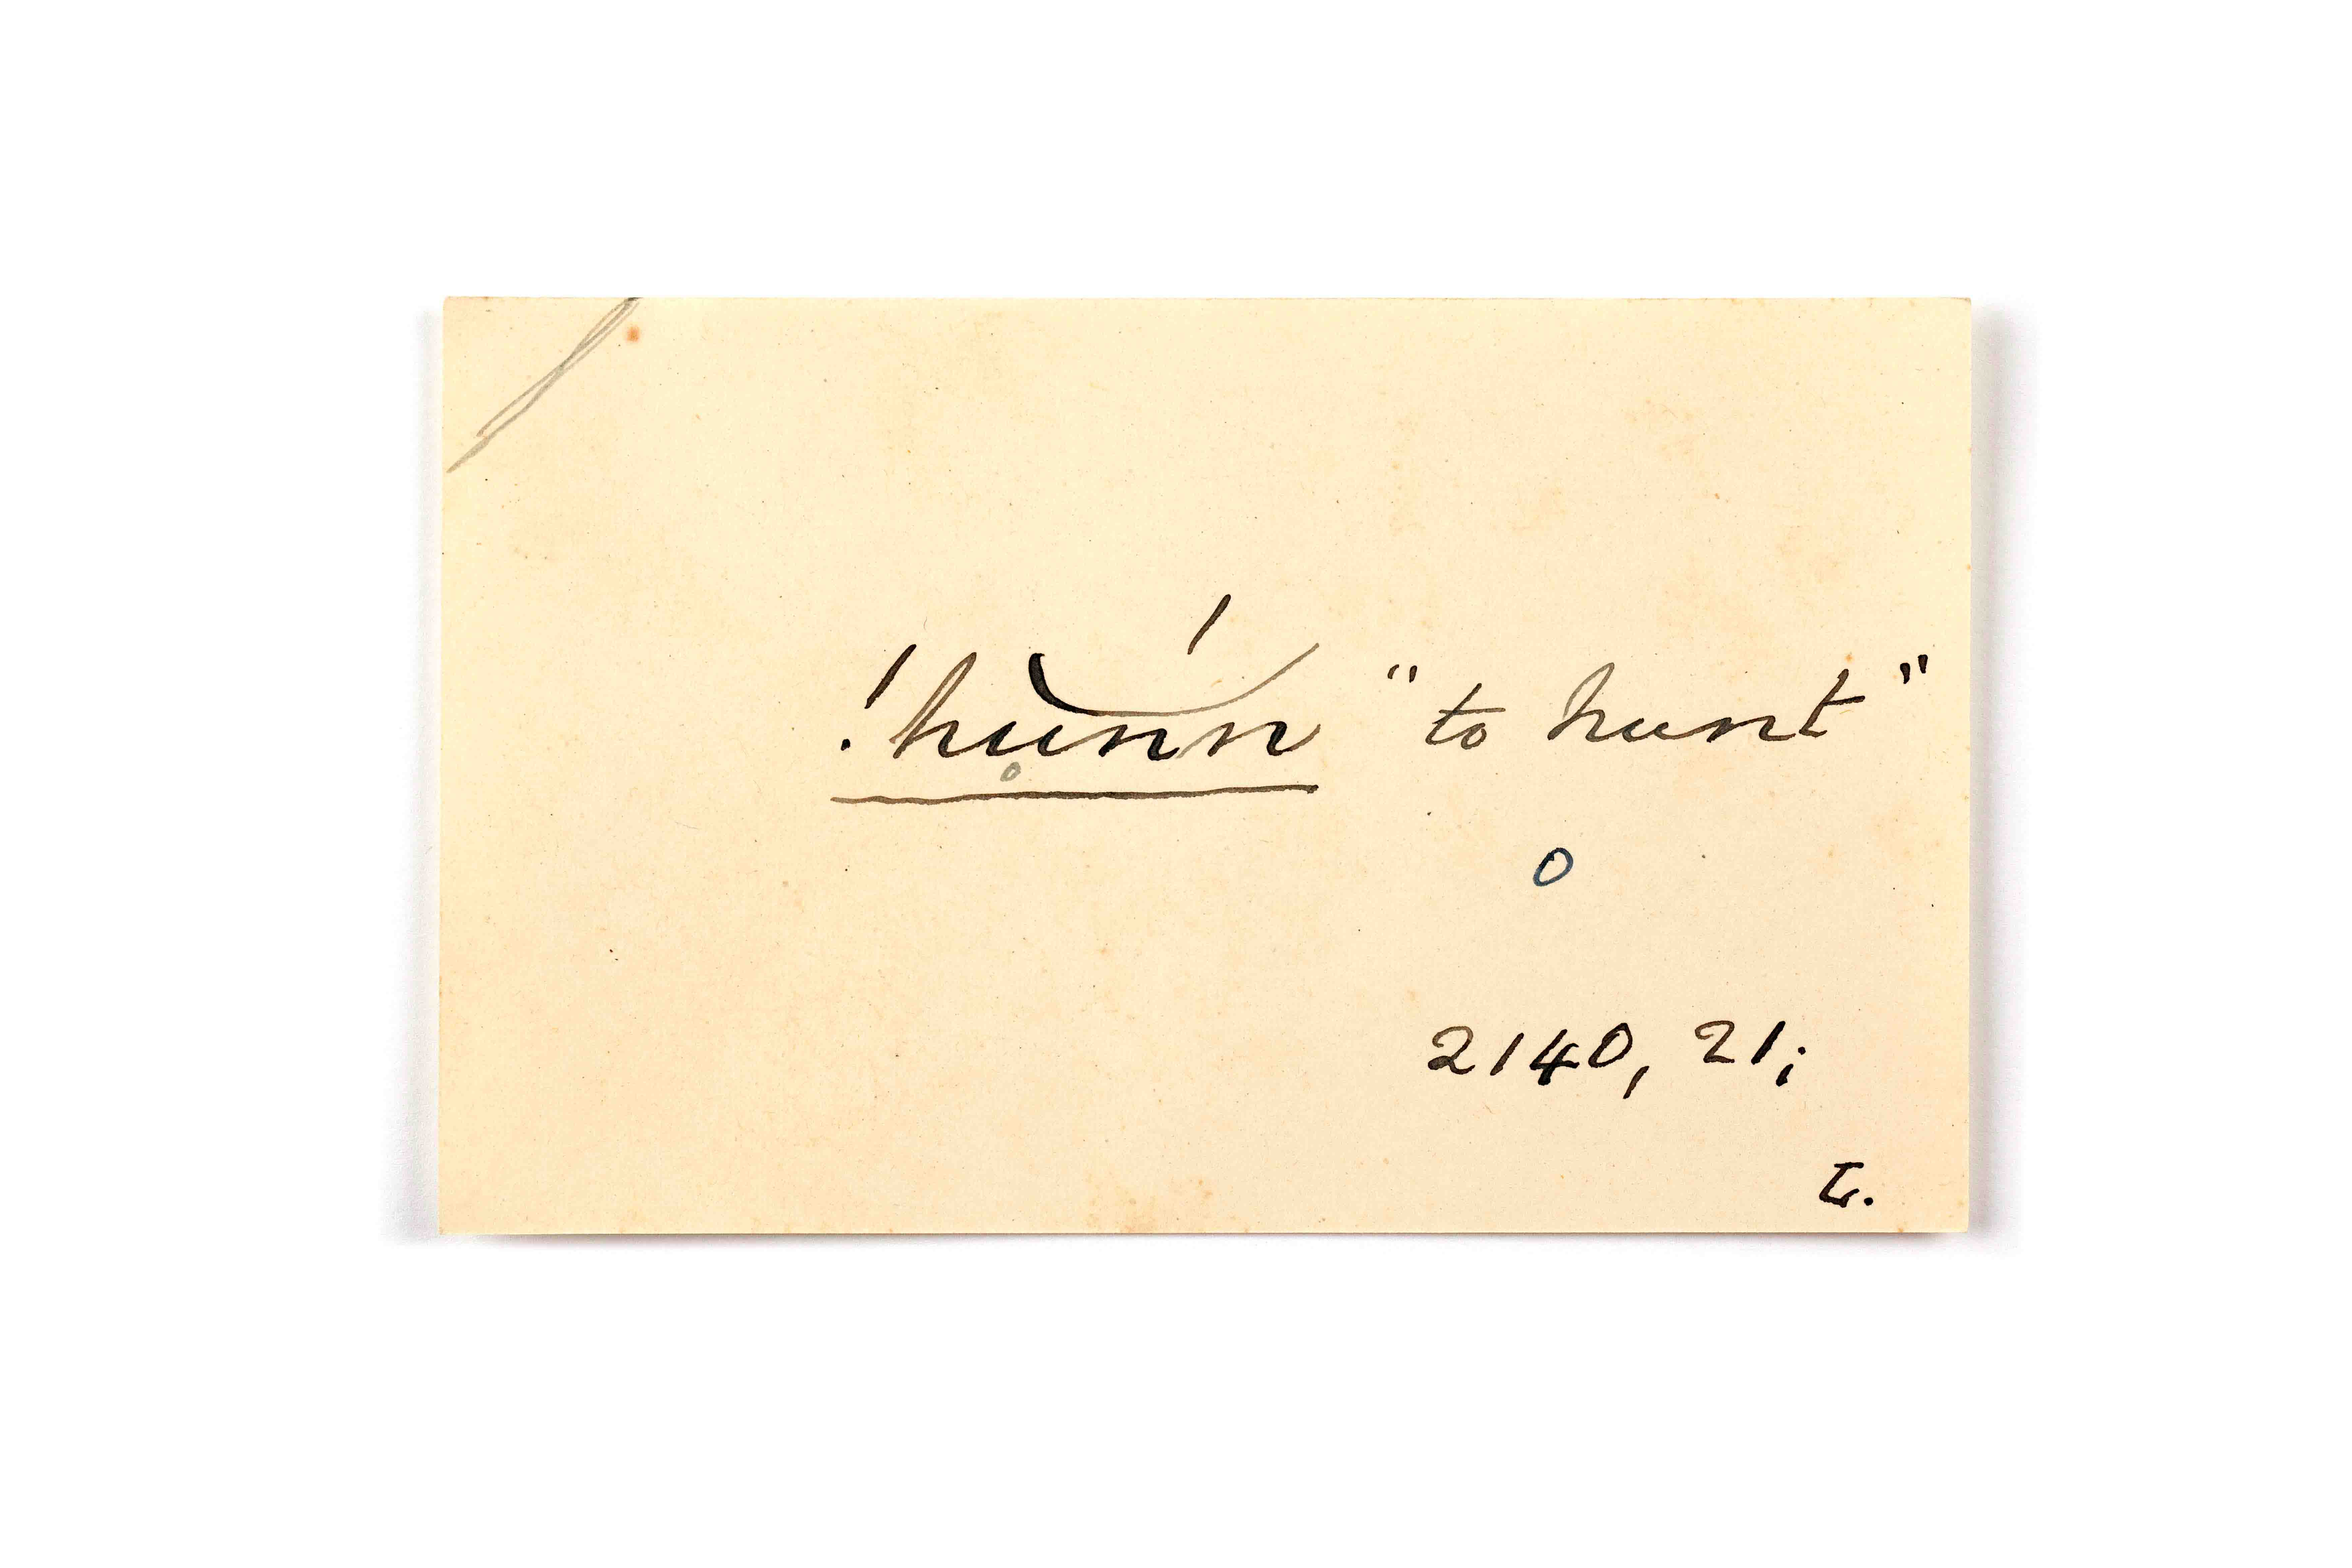 !hu̥n͝'n "to hunt"
o
2140, 21;
L.